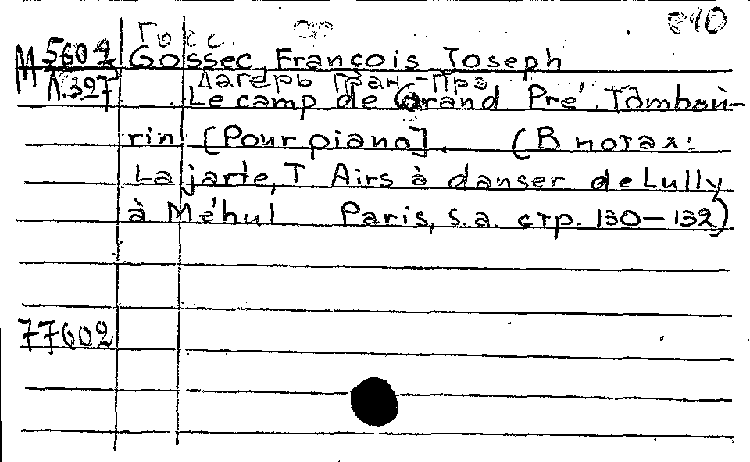 Госс. фр 840
М 5602 Gossec, François Joseph
Л.327 Лагерь Гран-Прэ
Le camp de Grand Pré. Tambou-
rin [Pour piano]. (В нотах:
Lajarte, T Airs à danser de Lully
à Méhul Paris, s.a. стр. 130-132)
77602